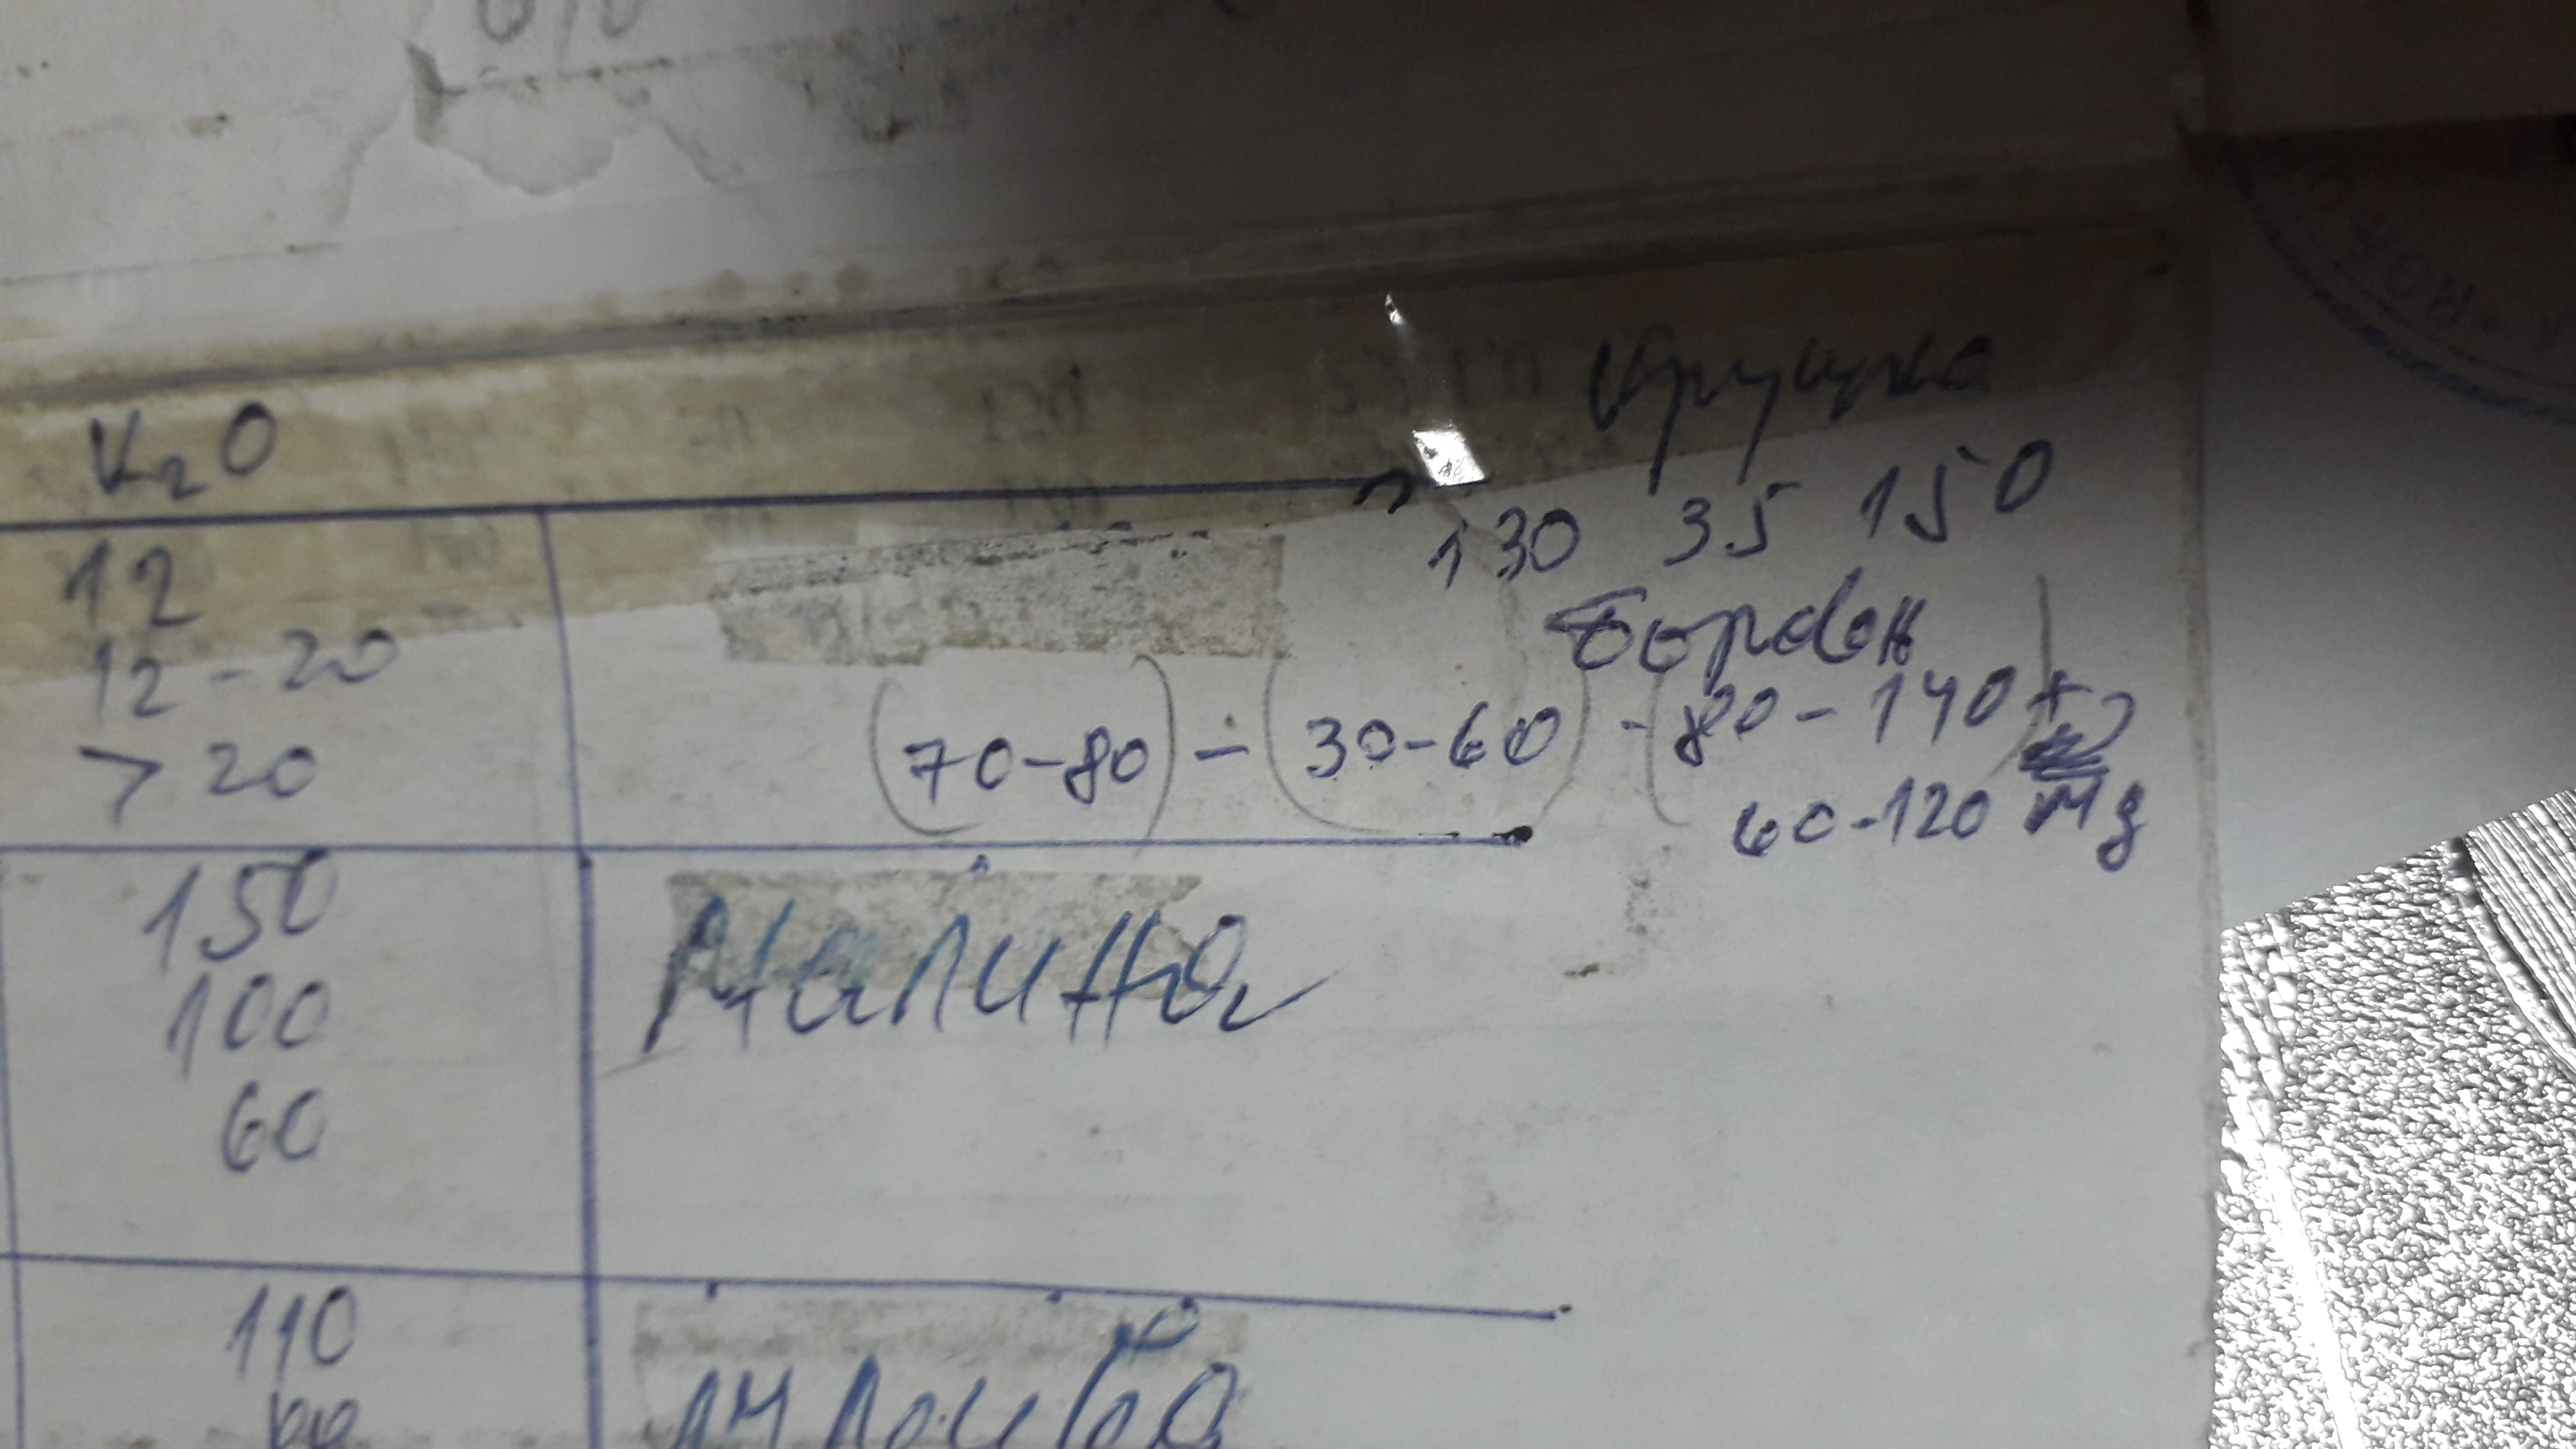 K₂O
12
12 - 20
> 20
Крушка
130 35 150
Боровен
(70-80) - (30-60) - (80 - 140 +
60-120 Mg
150
100
60
Малина
110